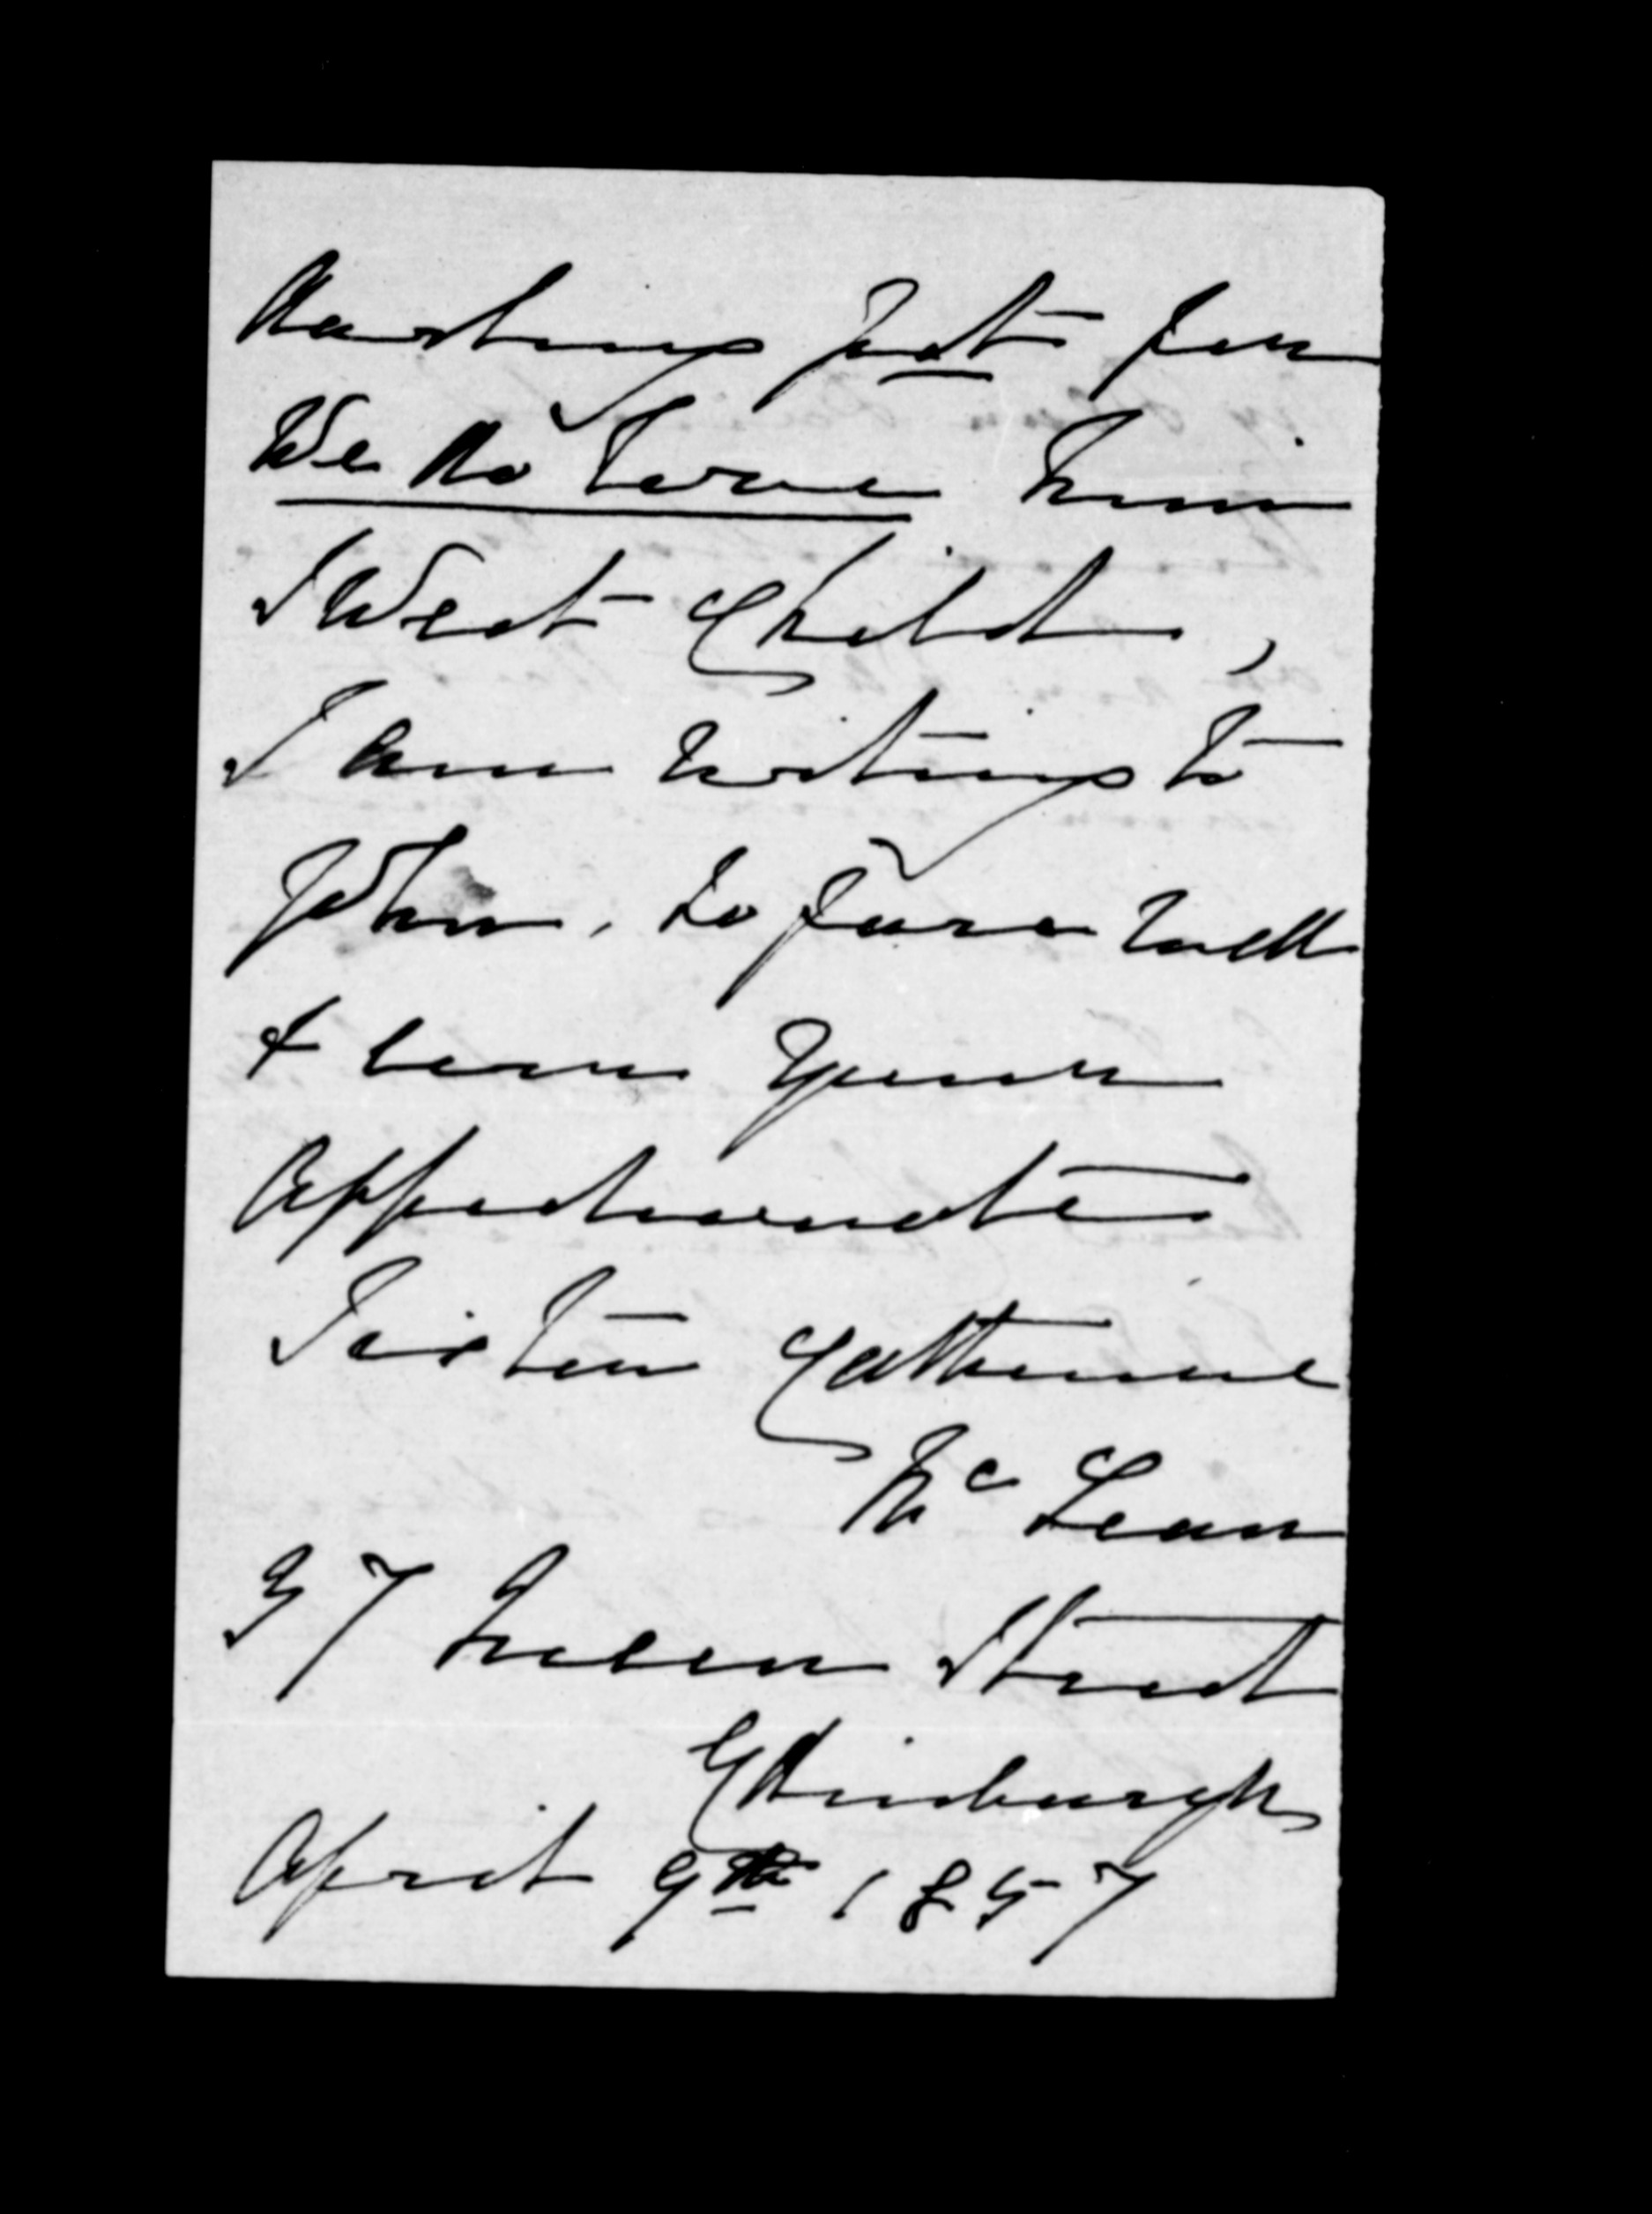 darling pet for
We do love him
Sweet Child,
I am writing to
John, so fare well
& ever your
Affectionate
Sister Catherine
Mc Lean
37 Queen Street
Edinburgh
April 9th 1857